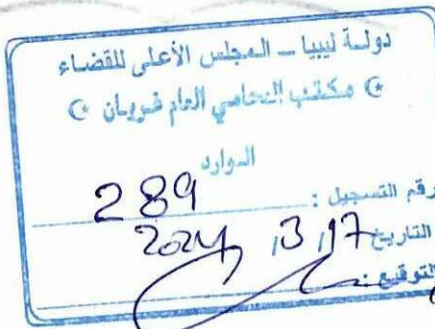 دولـة ليبيا – المجلس الأعلى للقضـاء
مكـتب المحامي العام غريان
الـوارد
رقم التسجيل : 289
التاريخ 17 / 3 / 2024
التوقيع :